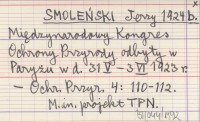 x
SMOLEŃSKI Jerzy 1924b.
Międzynarodowy Kongres
Ochrony Przyrody odbyty w
Paryżu w d. 31 V – 3 VI 1923 r.
– Ochr. Przyr. 4: 110-112.
M.in. projekt TPN.